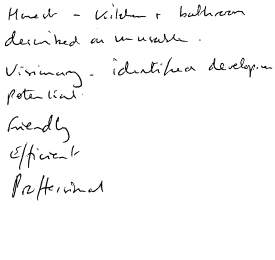 Honest - Kitchen + bathroom
described as unusable.
Visionary - identified developm
potential.
Friendly
Efficient
Proffessional